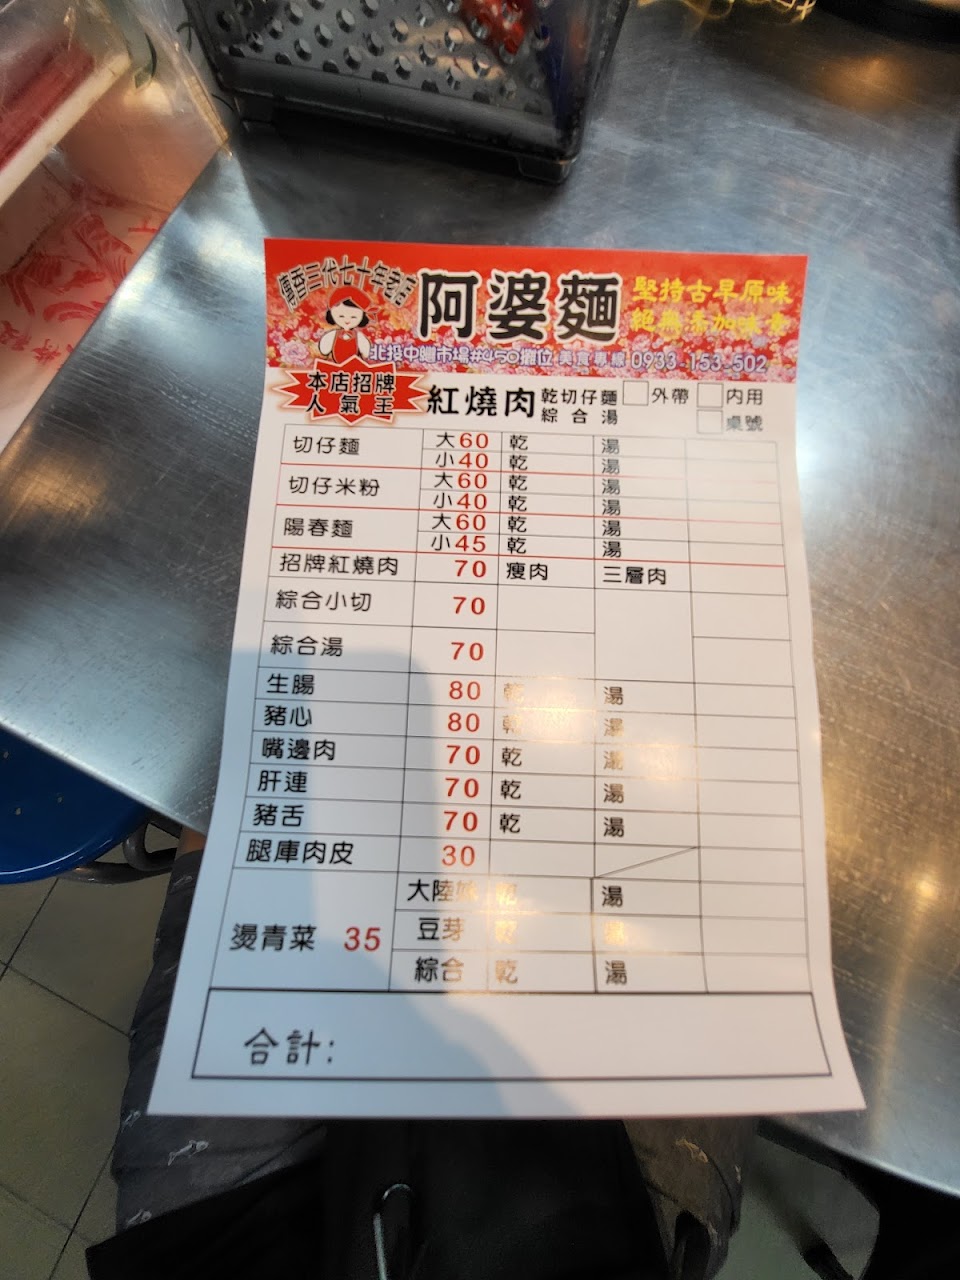 傳香三代七十年老店
阿婆麵
堅持古早原味
絕無添加味素
北投中繼市場#450攤位 美食專線 0933-153-502
本店招牌
人氣王
紅燒肉
乾切仔麵
綜合湯
外帶 內用
桌號
切仔麵 大60 乾 湯
小40 乾 湯
切仔米粉 大60 乾 湯
小40 乾 湯
陽春麵 大60 乾 湯
小45 乾 湯
招牌紅燒肉 70 瘦肉 三層肉
綜合小切 70
綜合湯 70
生腸 80 乾 湯
豬心 80 乾 湯
嘴邊肉 70 乾 湯
肝連 70 乾 湯
豬舌 70 乾 湯
腿庫肉皮 30
燙青菜 35
大陸妹 乾 湯
豆芽 乾 湯
綜合 乾 湯
合計: